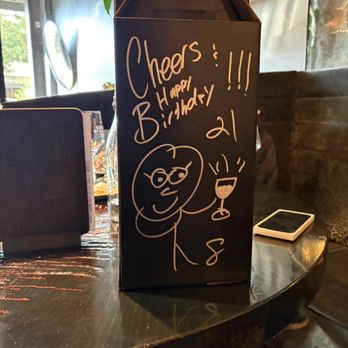 Cheers : !!!
Happy
Birthday
21
8